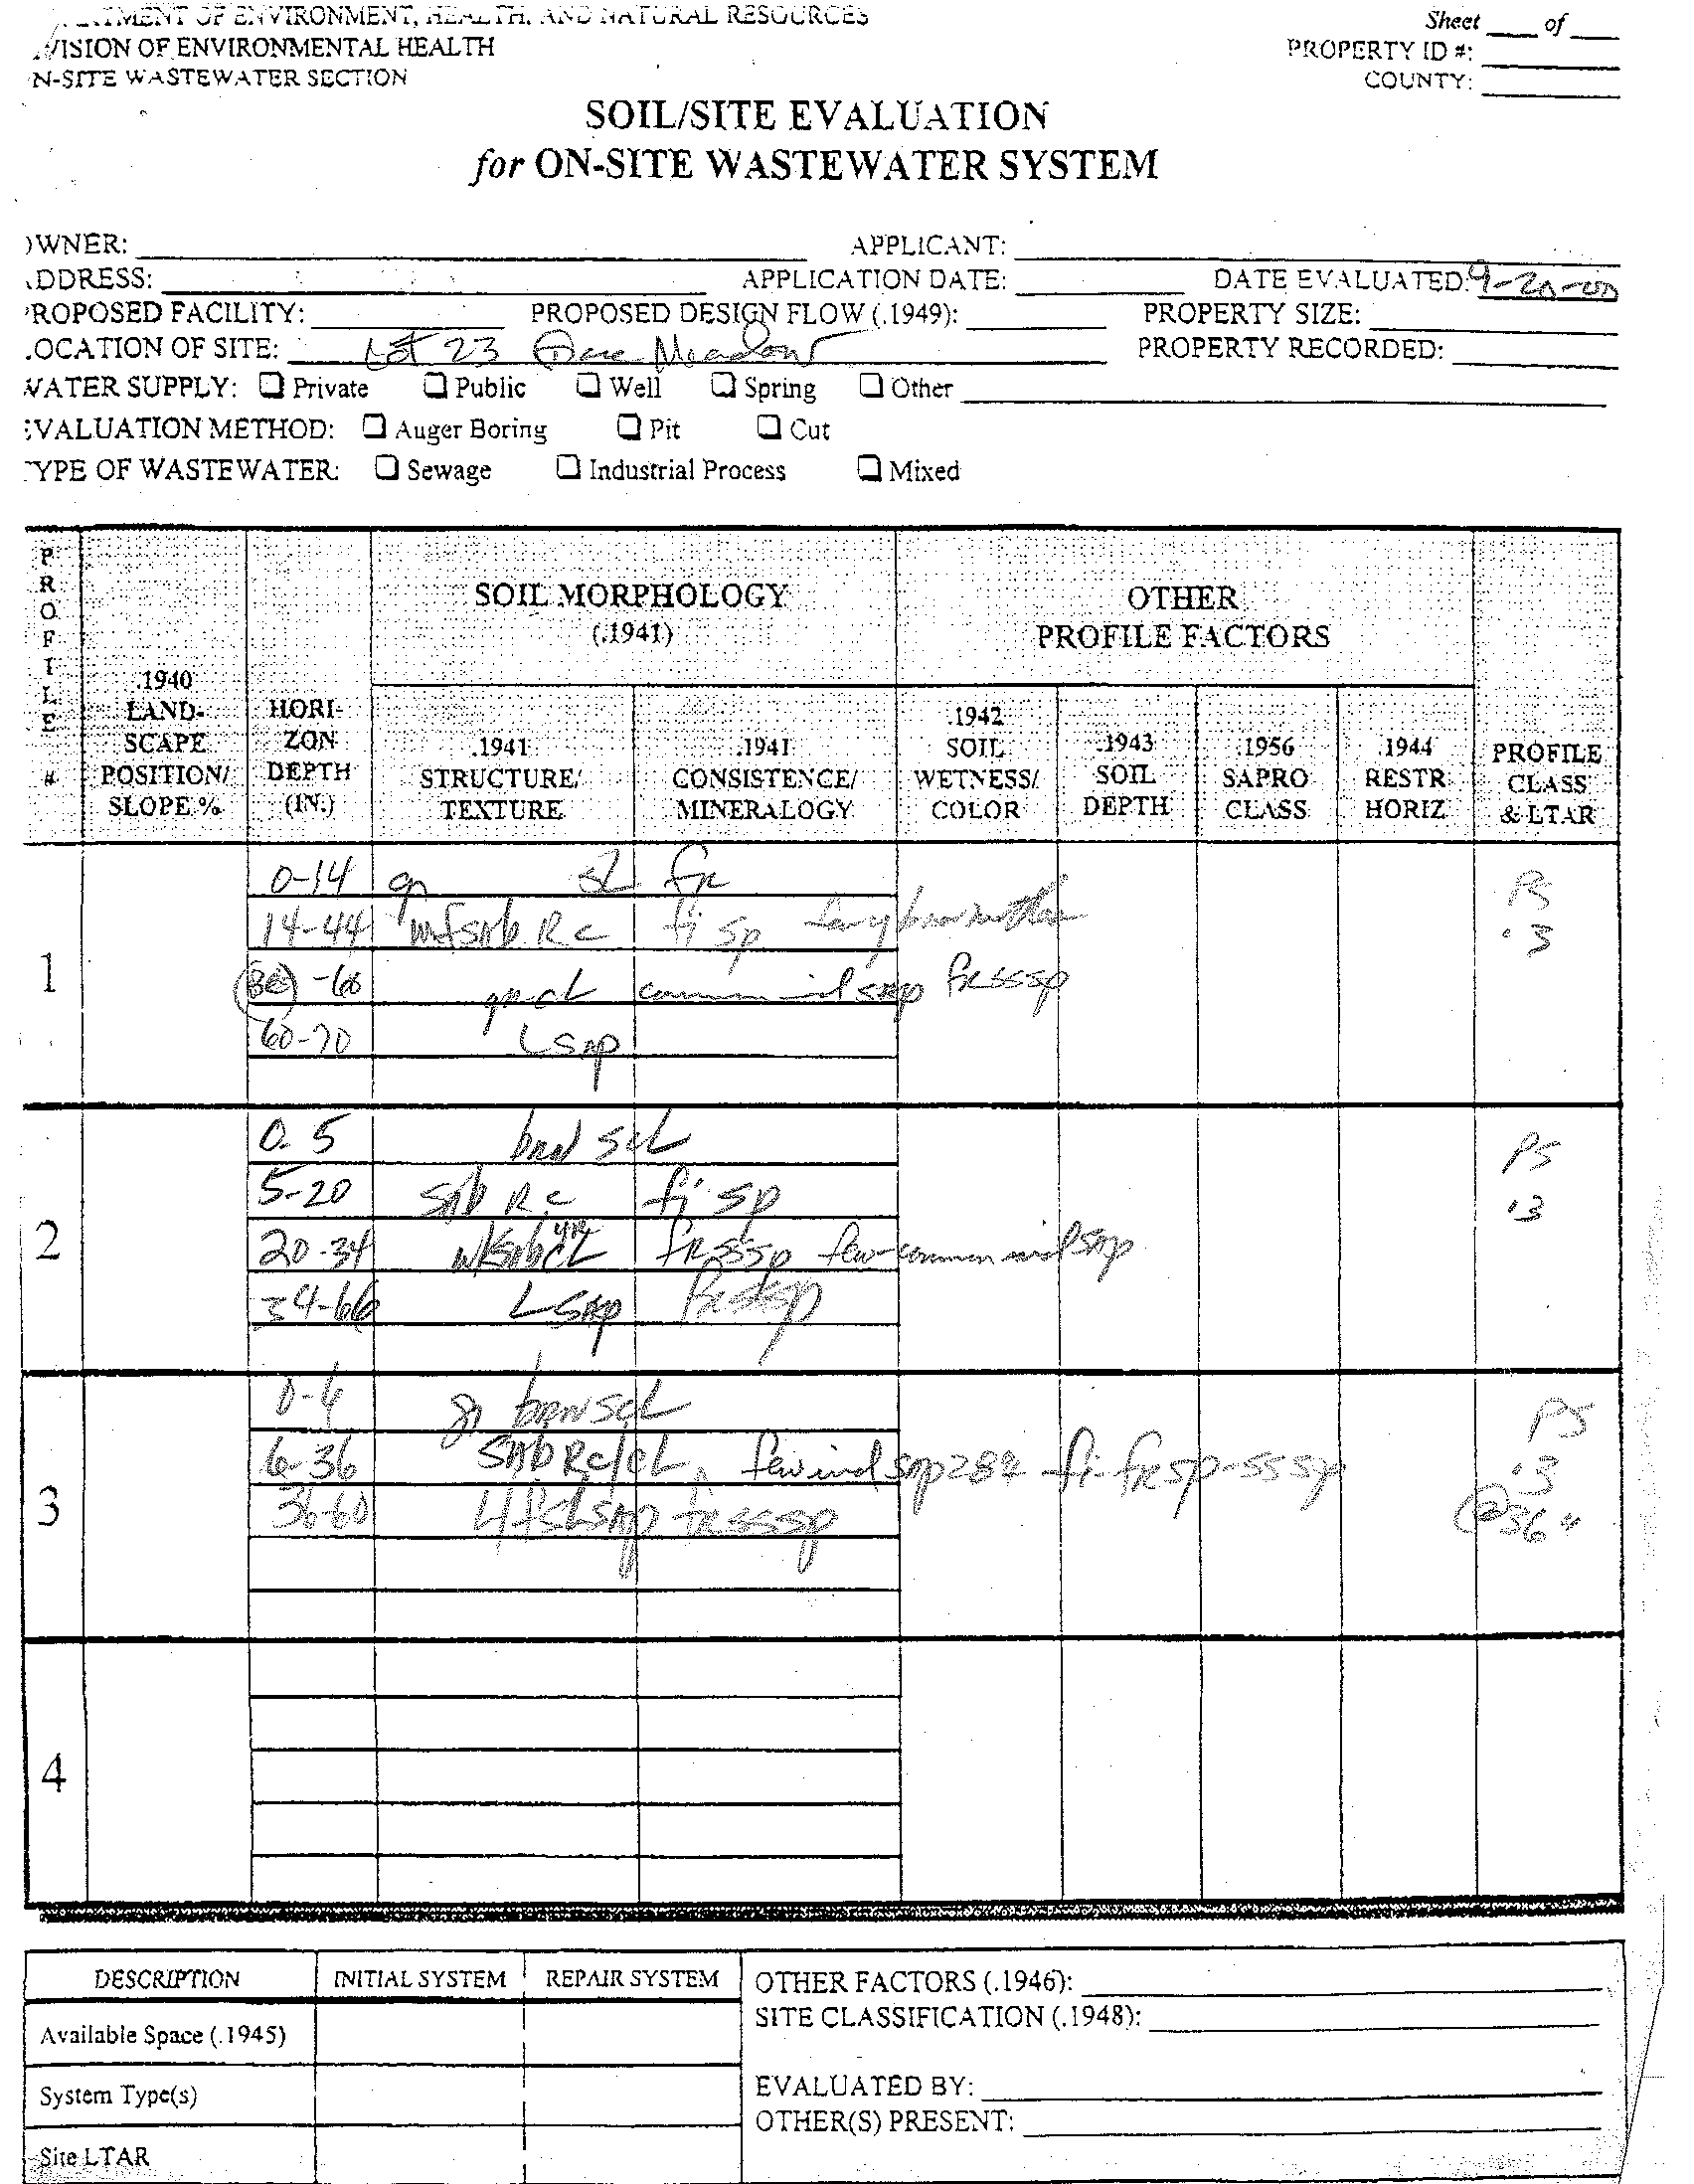 OF ENVIRONMENT, HEALTH, AND NATURAL RESOURCES
VISION OF ENVIRONMENTAL HEALTH
N-SITE WASTEWATER SECTION
Sheet ____ of ____
PROPERTY ID #:
COUNTY:
SOIL/SITE EVALUATION
for ON-SITE WASTEWATER SYSTEM
OWNER: APPLICANT:
ADDRESS: APPLICATION DATE: DATE EVALUATED: 9-20-00
PROPOSED FACILITY: PROPOSED DESIGN FLOW (.1949): PROPERTY SIZE:
LOCATION OF SITE: Lot 23 Meadow PROPERTY RECORDED:
WATER SUPPLY: ❑ Private ❑ Public ❑ Well ❑ Spring ❑ Other
EVALUATION METHOD: ❑ Auger Boring ❑ Pit ❑ Cut
TYPE OF WASTEWATER: ❑ Sewage ❑ Industrial Process ❑ Mixed
PROFILE #
.1940 LAND-SCAPE POSITION/ SLOPE %
HORI-ZON DEPTH (IN.)
SOIL MORPHOLOGY (.1941)
.1941 STRUCTURE/ TEXTURE
.1941 CONSISTENCE/ MINERALOGY
OTHER PROFILE FACTORS
.1942 SOIL WETNESS/ COLOR
.1943 SOIL DEPTH
.1956 SAPRO CLASS
.1944 RESTR HORIZ
PROFILE CLASS & LTAR
1
0-14 gr SL fr PS
14-44 Rc fi sp .3
-60 cL common sap fr sssp
60-70 L sap
2
0-5 scL PS
5-20 sbb Rc fi sp .3
20-34 cL fr sssp few-common sap
34-66 L sap fr sssp
3
0-6 gr brn scL PS
6-36 Rc/cL few sap fi-fr sp-sssp .3
36-60 sap fr sssp @36"
4
DESCRIPTION INITIAL SYSTEM REPAIR SYSTEM
Available Space (.1945)
System Type(s)
Site LTAR
OTHER FACTORS (.1946):
SITE CLASSIFICATION (.1948):
EVALUATED BY:
OTHER(S) PRESENT: